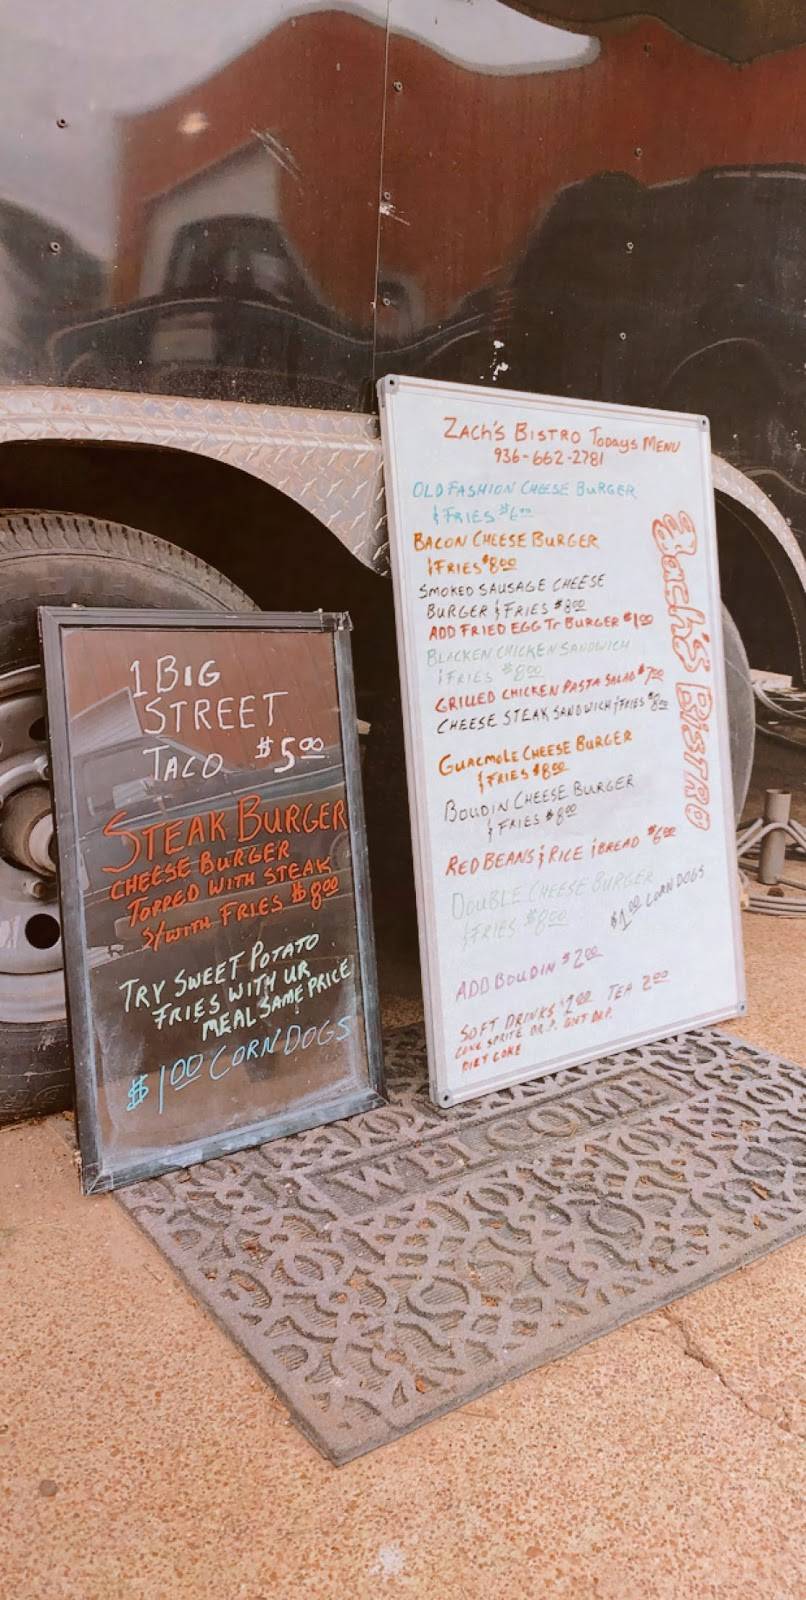 1 BIG
STREET
TACO $5.00
STEAK BURGER
CHEESE BURGER
TOPPED WITH STEAK
S/WITH FRIES $8.00
TRY SWEET POTATO
FRIES WITH UR
MEAL SAME PRICE
$1.00 CORN DOGS
ZACH'S BISTRO TODAYS MENU
936-662-2781
OLD FASHION CHEESE BURGER
& FRIES $6.00
BACON CHEESE BURGER
& FRIES $8.00
SMOKED SAUSAGE CHEESE
BURGER & FRIES $8.00
ADD FRIED EGG To BURGER $1.00
BLACKEN CHICKEN SANDWICH
& FRIES $8.00
GRILLED CHICKEN PASTA SALAD $7.00
CHEESE STEAK SANDWICH & FRIES $8.00
GUACMOLE CHEESE BURGER
& FRIES $8.00
BOUDIN CHEESE BURGER
& FRIES $8.00
RED BEANS & RICE & BREAD $6.00
DOUBLE CHEESE BURGER
& FRIES $8.00
$1.00 CORN DOGS
ADD BOUDIN $2.00
SOFT DRINKS $1.00 TEA 2.00
COKE SPRITE DR. P. DIET DR. P.
DIET COKE
Zach's BISTRO
WELCOME